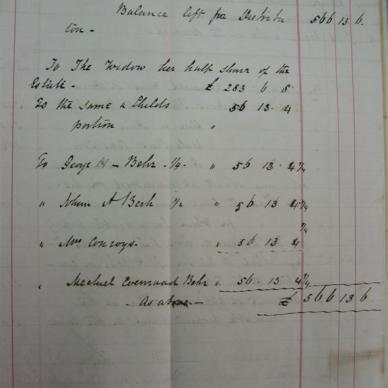 Balance left for Distribu 566 13 6
tion -
To The Widow her half share of the
Estate - £ 283 6 8
To the same a Childs 56 13 4
portion "
To George H - Behr - 1/4 - " 56 13 4 1/4
" Johan A Behr " 56 13 4 1/4
" Mrs Conroys - " 56 13 4 1/4
" Michiel Behr " 56 13 4 1/4
As above - £ 566 13 6